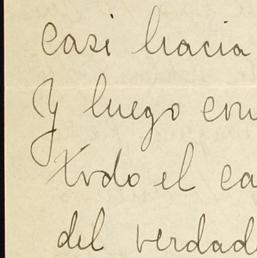 casi hacia
Y luego con
Todo el ca
del verdad